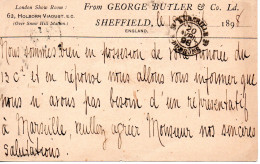 London Show Rooms:
62, HOLBORN VIADUCT, E.C.
(Over Snow Hill Station.)
From GEORGE BUTLER & Co. Ld.
SHEFFIELD, le 189
ENGLAND.
MARSEILLE
Nous sommes bien en possession de votre honorée du
13 Ct et en réponse nous allons vous informer que
nous n'avons pas besoin d'un representatif
à Marseille, veuillez agréer Monsieur nos sinceres
salutations.